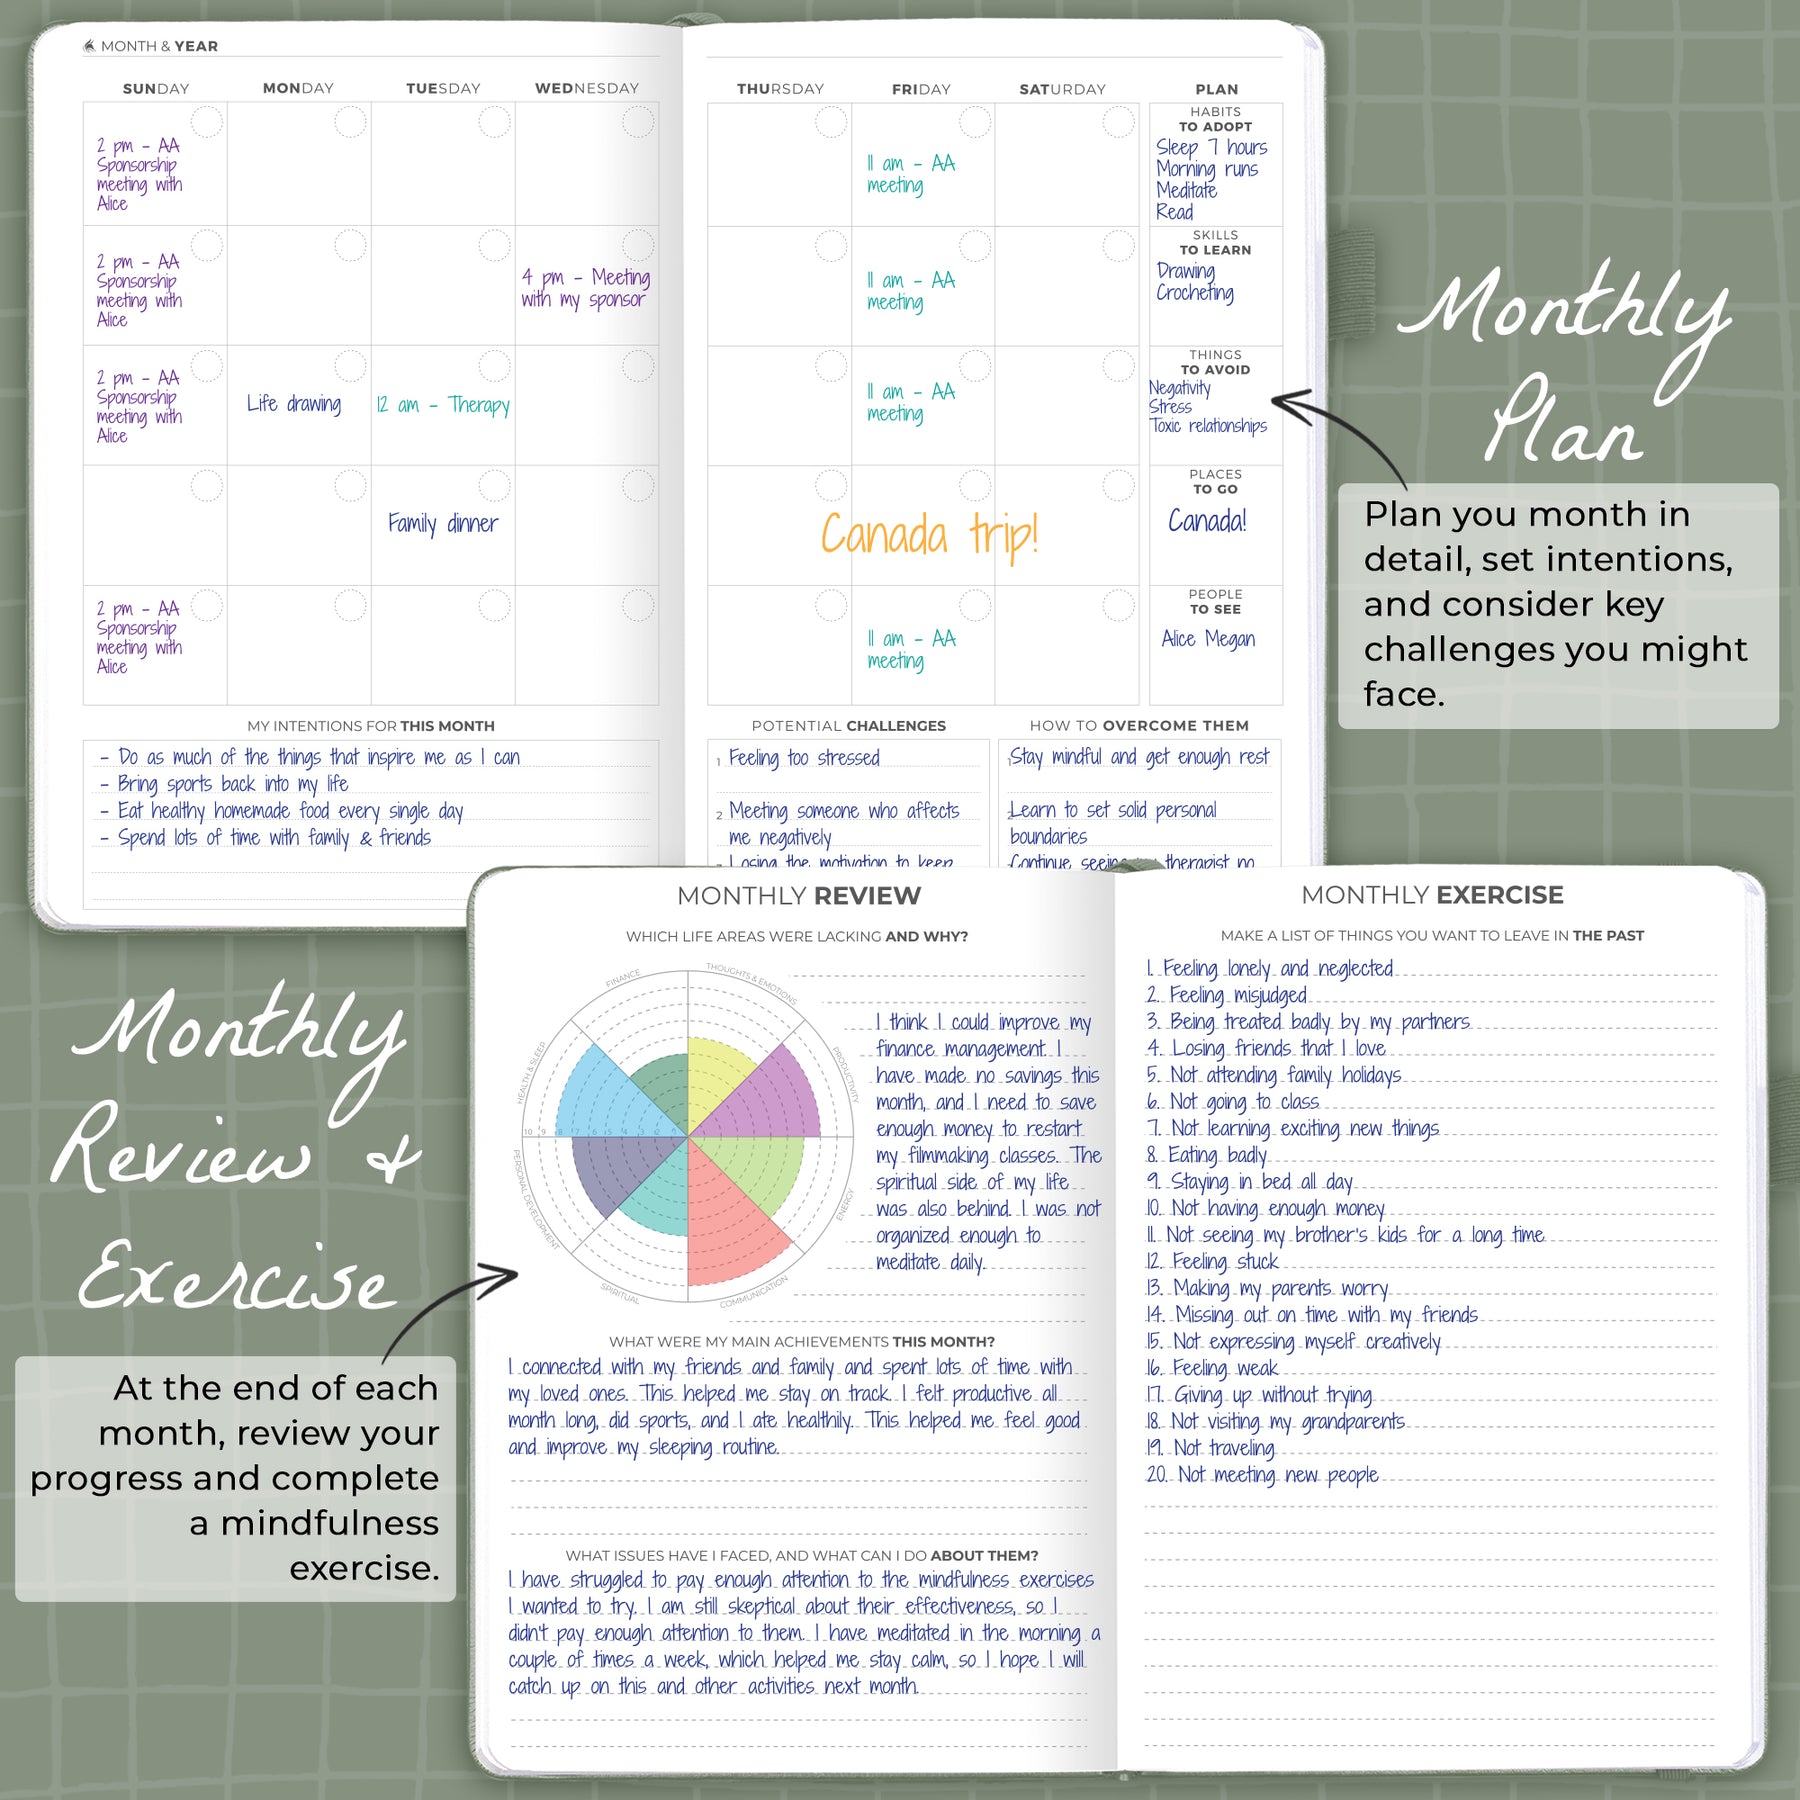 MONTH & YEAR
SUNDAY
MONDAY
TUESDAY
WEDNESDAY
THURSDAY
FRIDAY
SATURDAY
PLAN
2 pm - AA
Sponsorship
meeting with
Alice
11 am - AA
meeting
HABITS
TO ADOPT
Sleep 7 hours
Morning runs
Meditate
Read
2 pm - AA
Sponsorship
meeting with
Alice
4 pm - Meeting
with my sponsor
11 am - AA
meeting
SKILLS
TO LEARN
Drawing
Crocheting
2 pm - AA
Sponsorship
meeting with
Alice
Life drawing
12 am - Therapy
11 am - AA
meeting
THINGS
TO AVOID
Negativity
Stress
Toxic relationships
Family dinner
Canada trip!
PLACES
TO GO
Canada!
2 pm - AA
Sponsorship
meeting with
Alice
11 am - AA
meeting
PEOPLE
TO SEE
Alice Megan
MY INTENTIONS FOR THIS MONTH
- Do as much of the things that inspire me as I can
- Bring sports back into my life
- Eat healthy homemade food every single day
- Spend lots of time with family & friends
POTENTIAL CHALLENGES
1 Feeling too stressed
2 Meeting someone who affects
me negatively
Losing the motivation to keep
HOW TO OVERCOME THEM
1 Stay mindful and get enough rest
2 Learn to set solid personal
boundaries
Continue seeing therapist no
Monthly
Plan
Plan you month in
detail, set intentions,
and consider key
challenges you might
face.
Monthly
Review &
Exercise
At the end of each
month, review your
progress and complete
a mindfulness
exercise.
MONTHLY REVIEW
WHICH LIFE AREAS WERE LACKING AND WHY?
FINANCE
THOUGHTS & EMOTIONS
PRODUCTIVITY
ENERGY
COMMUNICATION
SPIRITUAL
PERSONAL DEVELOPMENT
HEALTH & SLEEP
10 9 8 7 6 5 4 3 2
I think I could improve my
finance management. I
have made no savings this
month, and I need to save
enough money to restart
my filmmaking classes. The
spiritual side of my life
was also behind. I was not
organized enough to
meditate daily.
WHAT WERE MY MAIN ACHIEVEMENTS THIS MONTH?
I connected with my friends and family and spent lots of time with
my loved ones. This helped me stay on track. I felt productive all
month long, did sports, and I ate healthily. This helped me feel good
and improve my sleeping routine.
WHAT ISSUES HAVE I FACED, AND WHAT CAN I DO ABOUT THEM?
I have struggled to pay enough attention to the mindfulness exercises
I wanted to try. I am still skeptical about their effectiveness, so I
didn't pay enough attention to them. I have meditated in the morning a
couple of times a week, which helped me stay calm, so I hope I will
catch up on this and other activities next month.
MONTHLY EXERCISE
MAKE A LIST OF THINGS YOU WANT TO LEAVE IN THE PAST
1. Feeling lonely and neglected
2. Feeling misjudged
3. Being treated badly by my partners
4. Losing friends that I love
5. Not attending family holidays
6. Not going to class
7. Not learning exciting new things
8. Eating badly
9. Staying in bed all day
10. Not having enough money
11. Not seeing my brother's kids for a long time
12. Feeling stuck
13. Making my parents worry
14. Missing out on time with my friends
15. Not expressing myself creatively
16. Feeling weak
17. Giving up without trying
18. Not visiting my grandparents
19. Not traveling
20. Not meeting new people